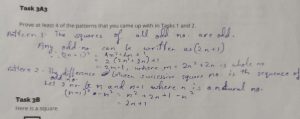 Task 3A3
Prove at least 4 of the patterns that you came up with in Tasks 1 and 2.
Pattern 1: The squares of all odd no. are odd.
Any odd no. can be written as (2n+1)
(2n+1)² = 4n²+4n+1
= 2(2n²+2n)+1
= 2m+1, where m = 2n²+2n is whole no
Pattern 2: The difference between successive square no. is the sequence of
odd no.
Let n & n+1 where n is a natural no.
(n+1)² - n² = n²+2n+1-n²
= 2n+1
Task 3B
Here is a square